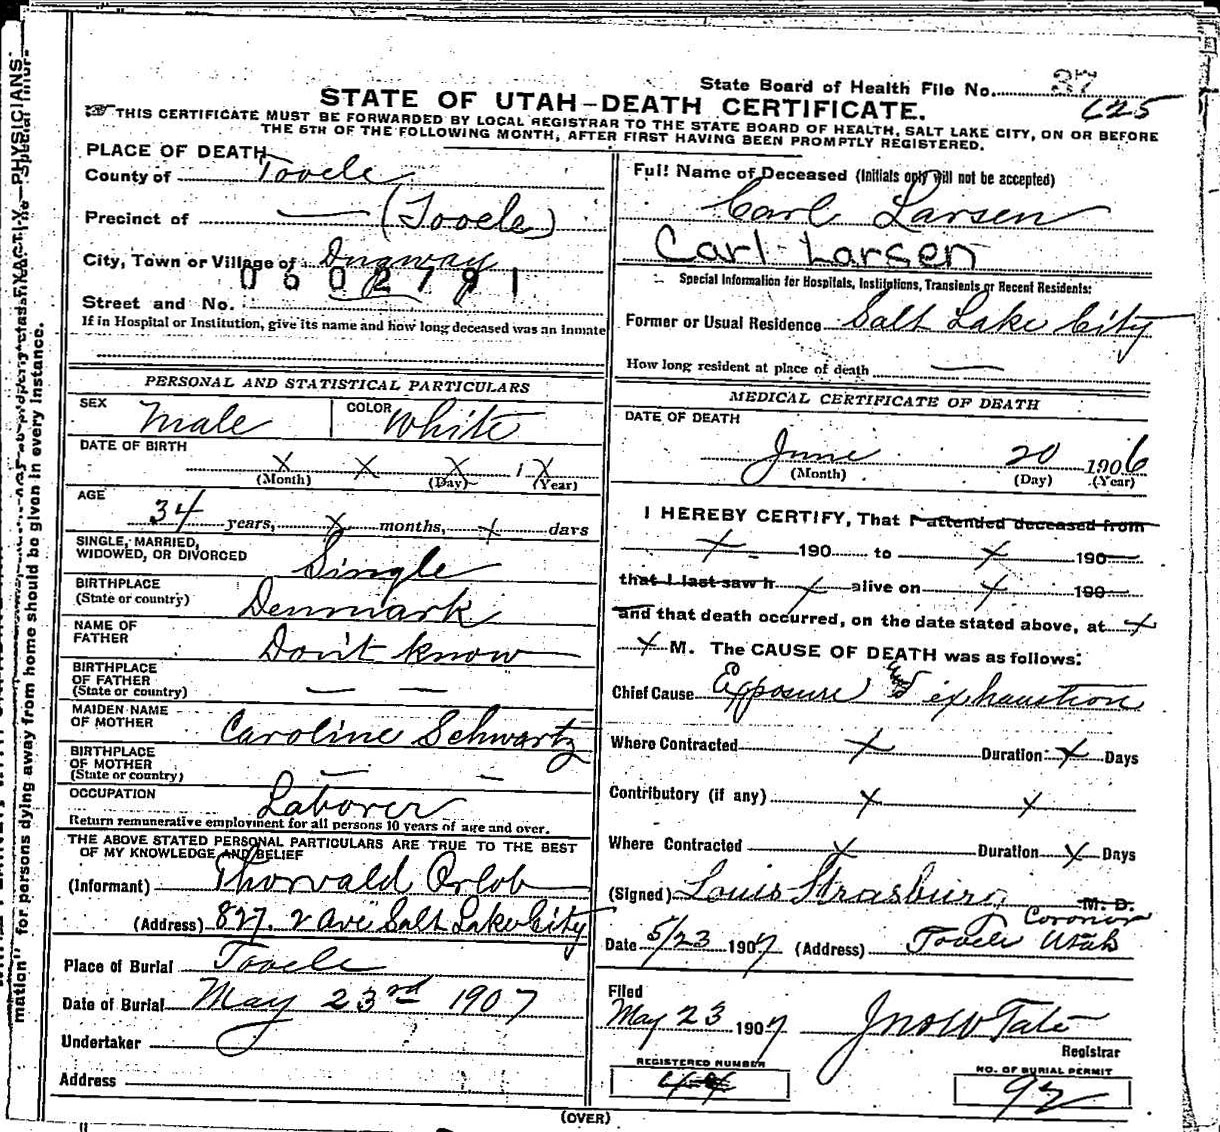 State Board of Health File No. 37
625
STATE OF UTAH—DEATH CERTIFICATE.
THIS CERTIFICATE MUST BE FORWARDED BY LOCAL REGISTRAR TO THE STATE BOARD OF HEALTH, SALT LAKE CITY, ON OR BEFORE
THE 5TH OF THE FOLLOWING MONTH, AFTER FIRST HAVING BEEN PROMPTLY REGISTERED.
PLACE OF DEATH
County of Tooele
Precinct of — (Tooele)
City, Town or Village of Dugway
0602791
Street and No.
If in Hospital or Institution, give its name and how long deceased was an inmate
Full Name of Deceased (Initials only will not be accepted)
Carl Larsen
Carl Larsen
Special Information for Hospitals, Institutions, Transients or Recent Residents:
Former or Usual Residence Salt Lake City
How long resident at place of death —
PERSONAL AND STATISTICAL PARTICULARS
SEX Male COLOR White
DATE OF BIRTH
X X X 1 X
(Month) (Day) (Year)
AGE
34 years, X months, X days
SINGLE, MARRIED,
WIDOWED, OR DIVORCED Single
BIRTHPLACE
(State or country) Denmark
NAME OF
FATHER Don't know
BIRTHPLACE
OF FATHER
(State or country) — —
MAIDEN NAME
OF MOTHER Caroline Schwartz
BIRTHPLACE
OF MOTHER
(State or country) — —
OCCUPATION Laborer
Return remunerative employment for all persons 10 years of age and over.
THE ABOVE STATED PERSONAL PARTICULARS ARE TRUE TO THE BEST
OF MY KNOWLEDGE AND BELIEF
(Informant) Thorvald Orlob
(Address) 827. 2 Ave Salt Lake City
Place of Burial Tooele
Date of Burial May 23rd 1907
Undertaker
Address
MEDICAL CERTIFICATE OF DEATH
DATE OF DEATH
June 20 1906
(Month) (Day) (Year)
I HEREBY CERTIFY, That I attended deceased from
X 190 to X 190
that I last saw h X alive on X 190
and that death occurred, on the date stated above, at X
X M. The CAUSE OF DEATH was as follows:
Chief Cause Exposure and exhaustion
Where Contracted X Duration X Days
Contributory (if any) X X
Where Contracted X Duration X Days
(Signed) Louis Strasburg M. D.
Coroner
Date 5/23 1907 (Address) Tooele Utah
Filed
May 23 1907 Jno W Tate
Registrar
REGISTERED NUMBER
NO. OF BURIAL PERMIT
92
(OVER)
mation" for persons dying away from home should be given in every instance.